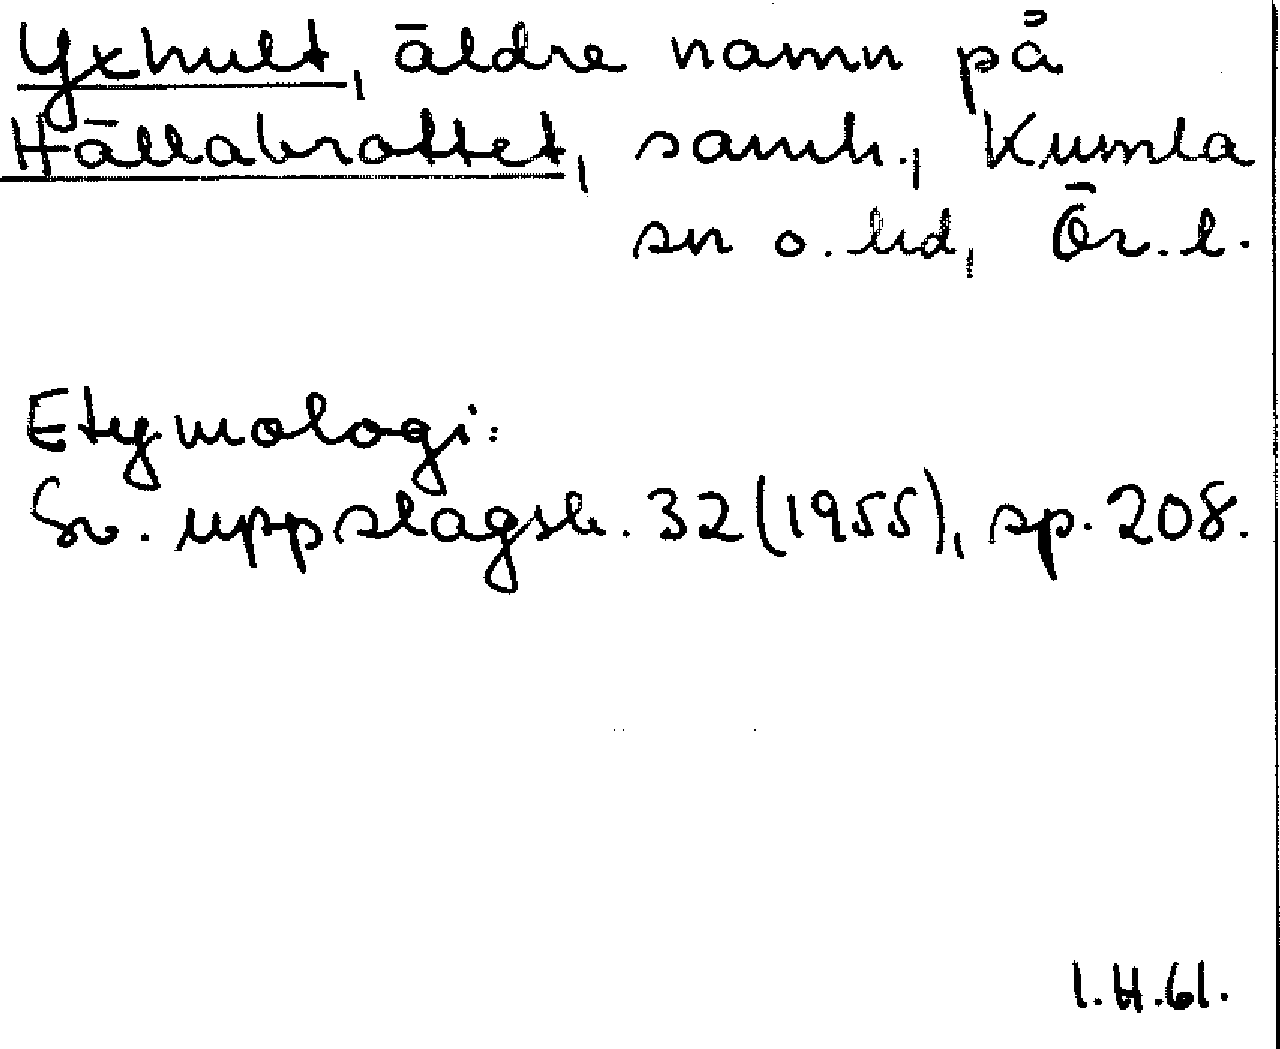 Yxhult, äldre namn på
Hällabrottet, samh., Kumla
sn o. hd, Ör. l.
Etymologi:
Sv. uppslagsb. 32 (1955), sp. 208.
I.H.61.